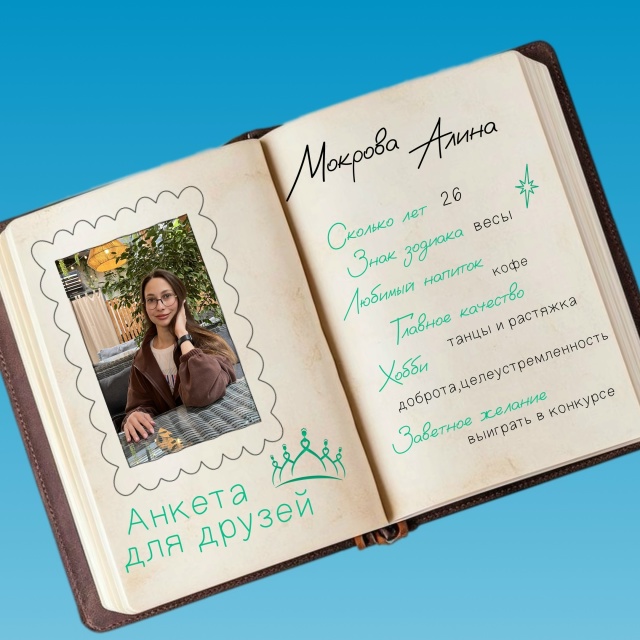 Мокрова Алина
Сколько лет 26
Знак зодиака весы
Любимый напиток кофе
Главное качество
танцы и растяжка
Хобби
доброта,целеустремленность
Заветное желание
выиграть в конкурсе
Анкета
для друзей